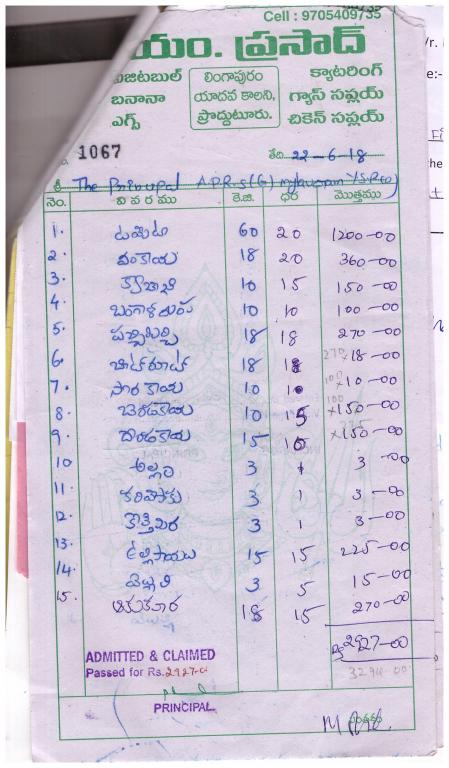 Cell : 9705409735
యం. ప్రసాద్
విజిటబుల్ లింగాపురం క్యాటరింగ్
బనానా యాదవ కాలని, గ్యాస్ సప్లయ్
ఎగ్స్ ప్రొద్దుటూరు. చికెన్ సప్లయ్
1067 తేది 22-6-18
శ్రీ The Principal A.P.R.S (G)
నెం. వివరము కె.జి. ధర మొత్తము
1. టమోటా 60 20 1200-00
2. వంకాయ 18 20 360-00
3. క్యాబేజి 10 15 150-00
4. 10 10 100-00
5. పచ్చిమిర్చి 18 18 270-00
6. బీట్‌రూట్ 18 18 270 18-00
7. సొరకాయ 10 10 100 10-00
8. బెండకాయ 10 15 150-00
9. దొండకాయ 15 10 150-00
10 అల్లం 3 1 3-00
11. కరివేపాకు 3 1 3-00
12. కొత్తిమీర 3 1 3-00
13. ఉల్లిపాయలు 15 15 225-00
14. 3 5 15-00
15. ఆకుకూర 18 15 270-00
Rs 2927-00
3294-00
ADMITTED & CLAIMED
Passed for Rs. 2927-0
PRINCIPAL
సంతకం